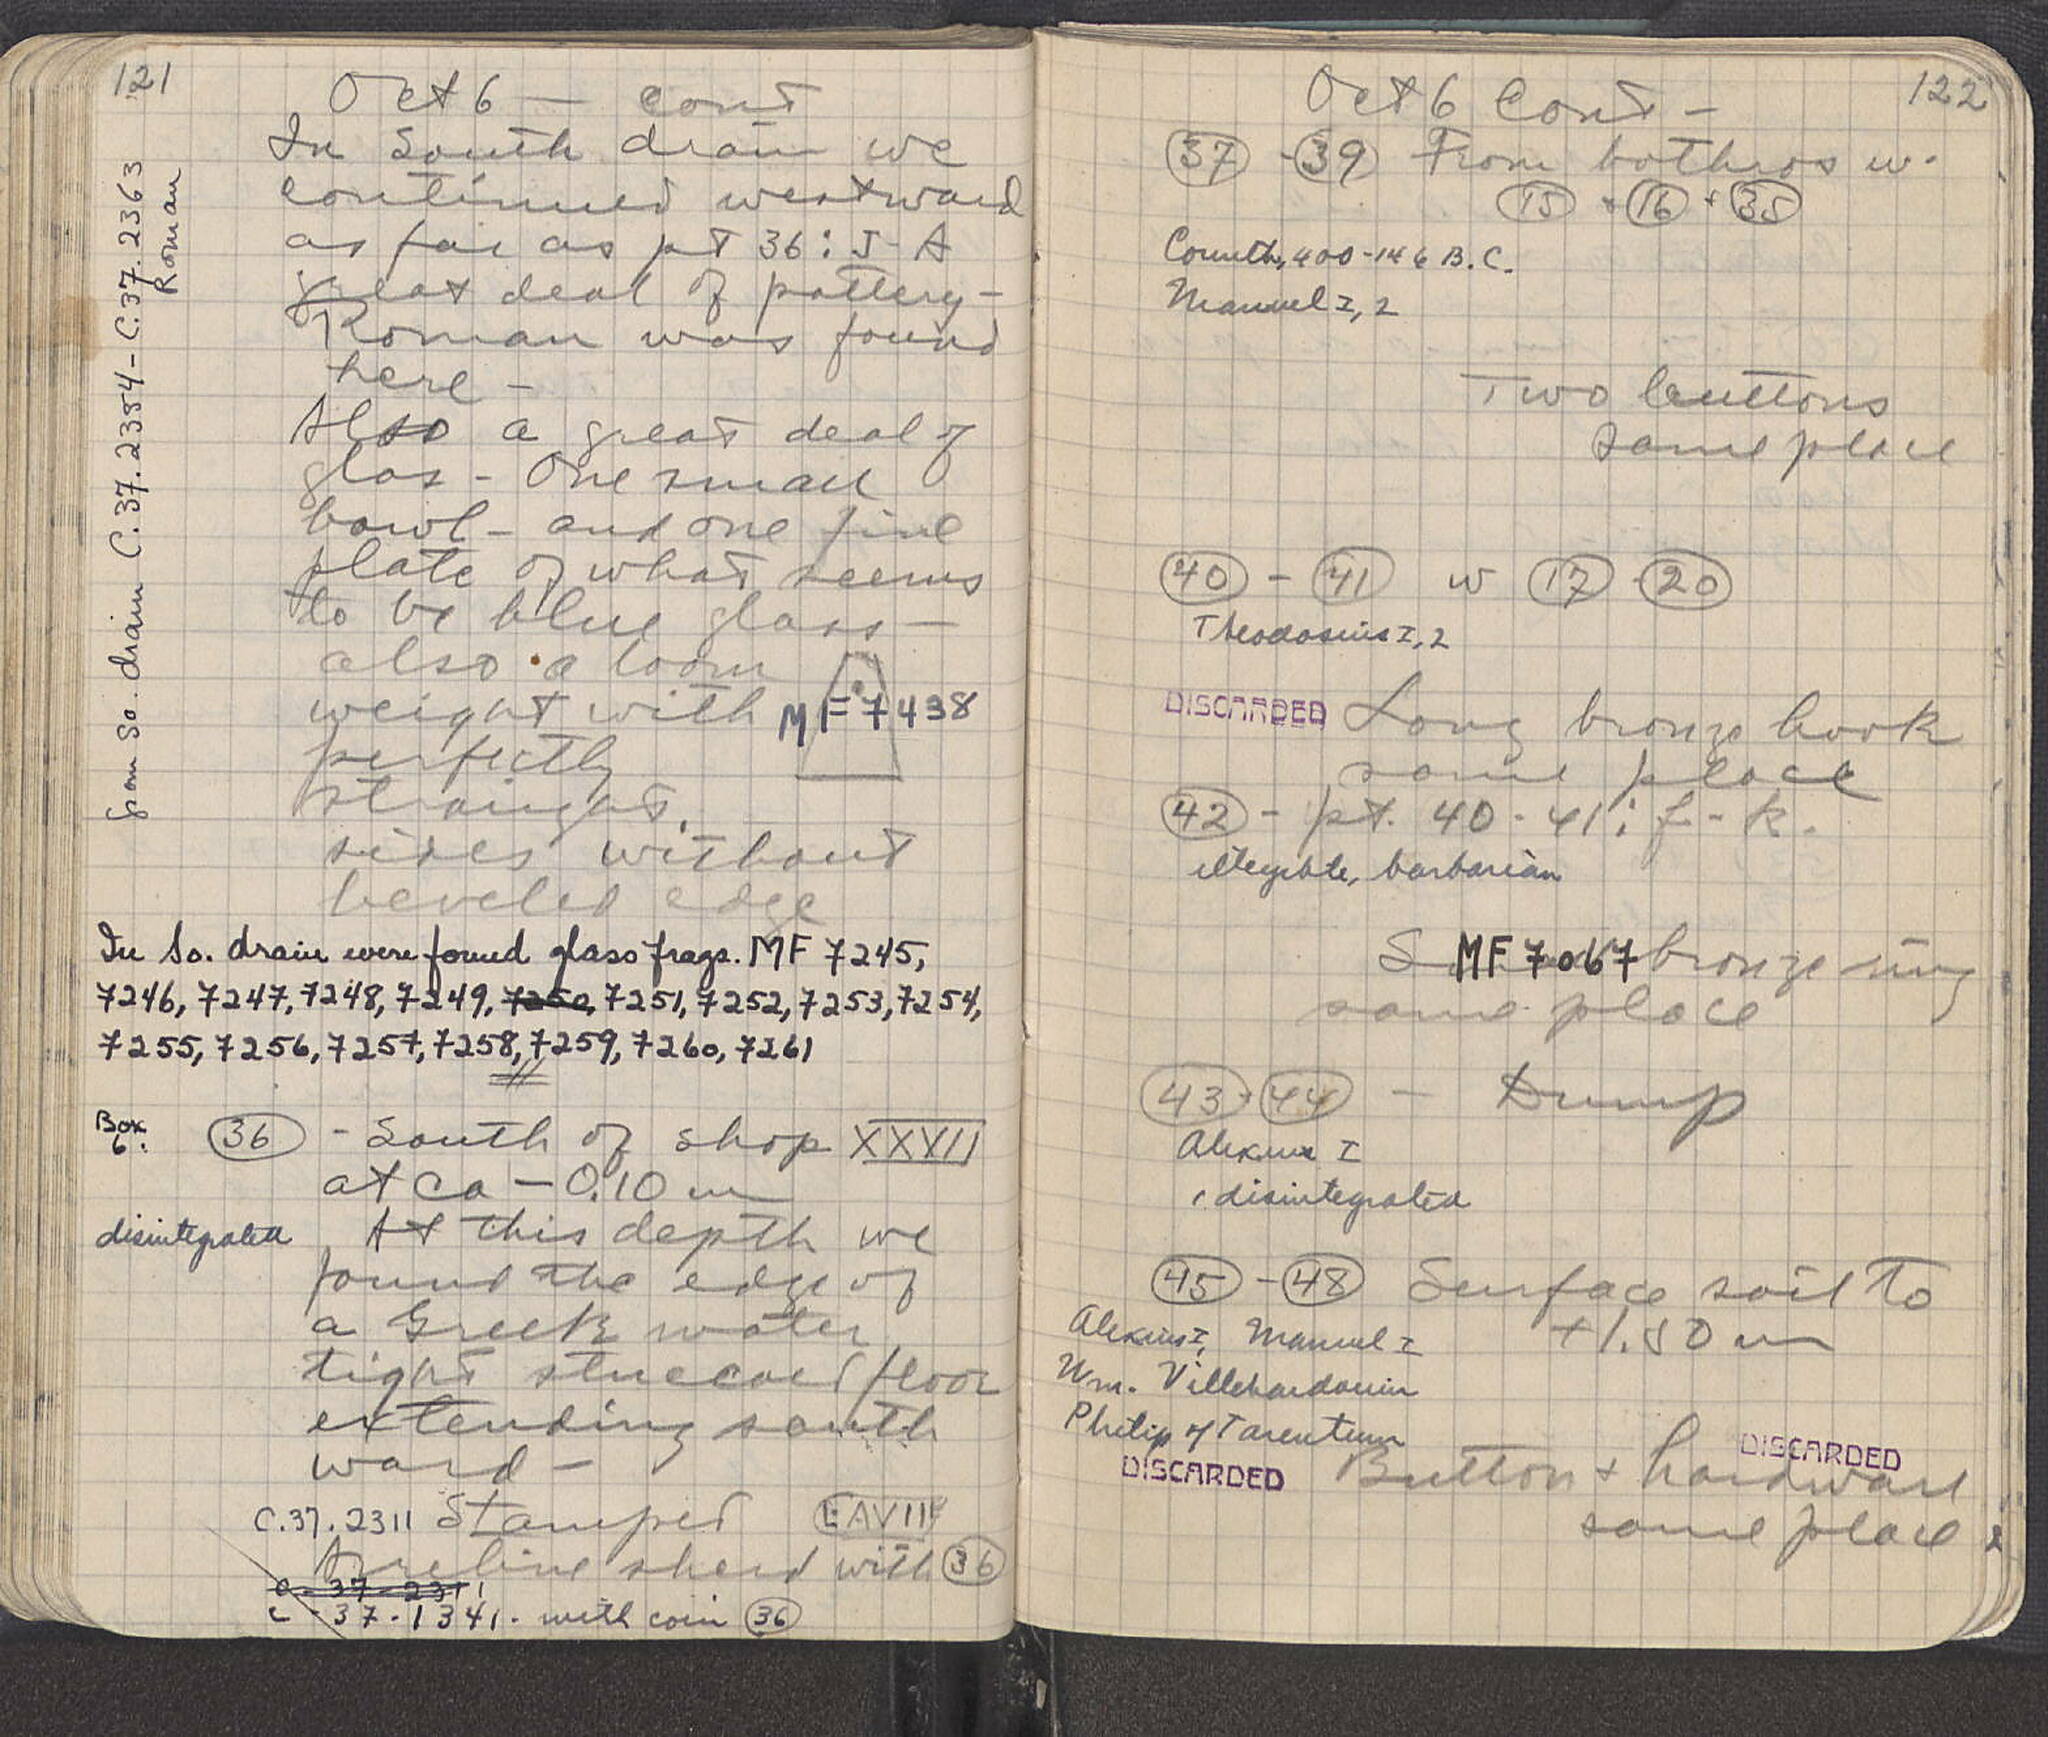 121
Oct 6 — cont
In South drain we
continued westward
as far as pt 36:J- A
great deal of pottery-
Roman was found
here -
Also a great deal of
glas - One small
bowl - and one fine
plate of what seems
to be blue glass —
also a loom
weight with MF 7438
perfectly
straight
sides without
beveled edge
from So. drain C.37.2354 - C.37.2363
Roman
In So. drain were found glass frags. MF 7245,
7246, 7247, 7248, 7249, 7250, 7251, 7252, 7253, 7254,
7255, 7256, 7257, 7258, 7259, 7260, 7261
Box 36 - South of shop XXXII
6.
at ca — 0.10 m
disintegrated At this depth we
found the edge of
a Greek water
tight stuccoed floor
extending south
ward —
C.37.2311 Stamped
Arretine sherd with 36
C-37-2311
C-37-1341. with coin 36
122
Oct 6 Cont -
37 - 39 From bothros w.
15 + 16 + 35
Corinth, 400-146 B.C.
Manuel I, 2
Two buttons
same place
40 - 41 w 17 - 20
Theodosius I, 2
DISCARDED Long bronze hook
same place
42 - pt. 40-41: f-k.
illegible, barbarian
MF 7067 bronze ring
same place
43-44 — Dump
Alexius I
1 disintegrated
45 - 48 Surface soil to
+1.50 m
Alexius I, Manuel I
Wm. Villehardouin
Philip of Tarentum
DISCARDED Button + hardware DISCARDED
same place